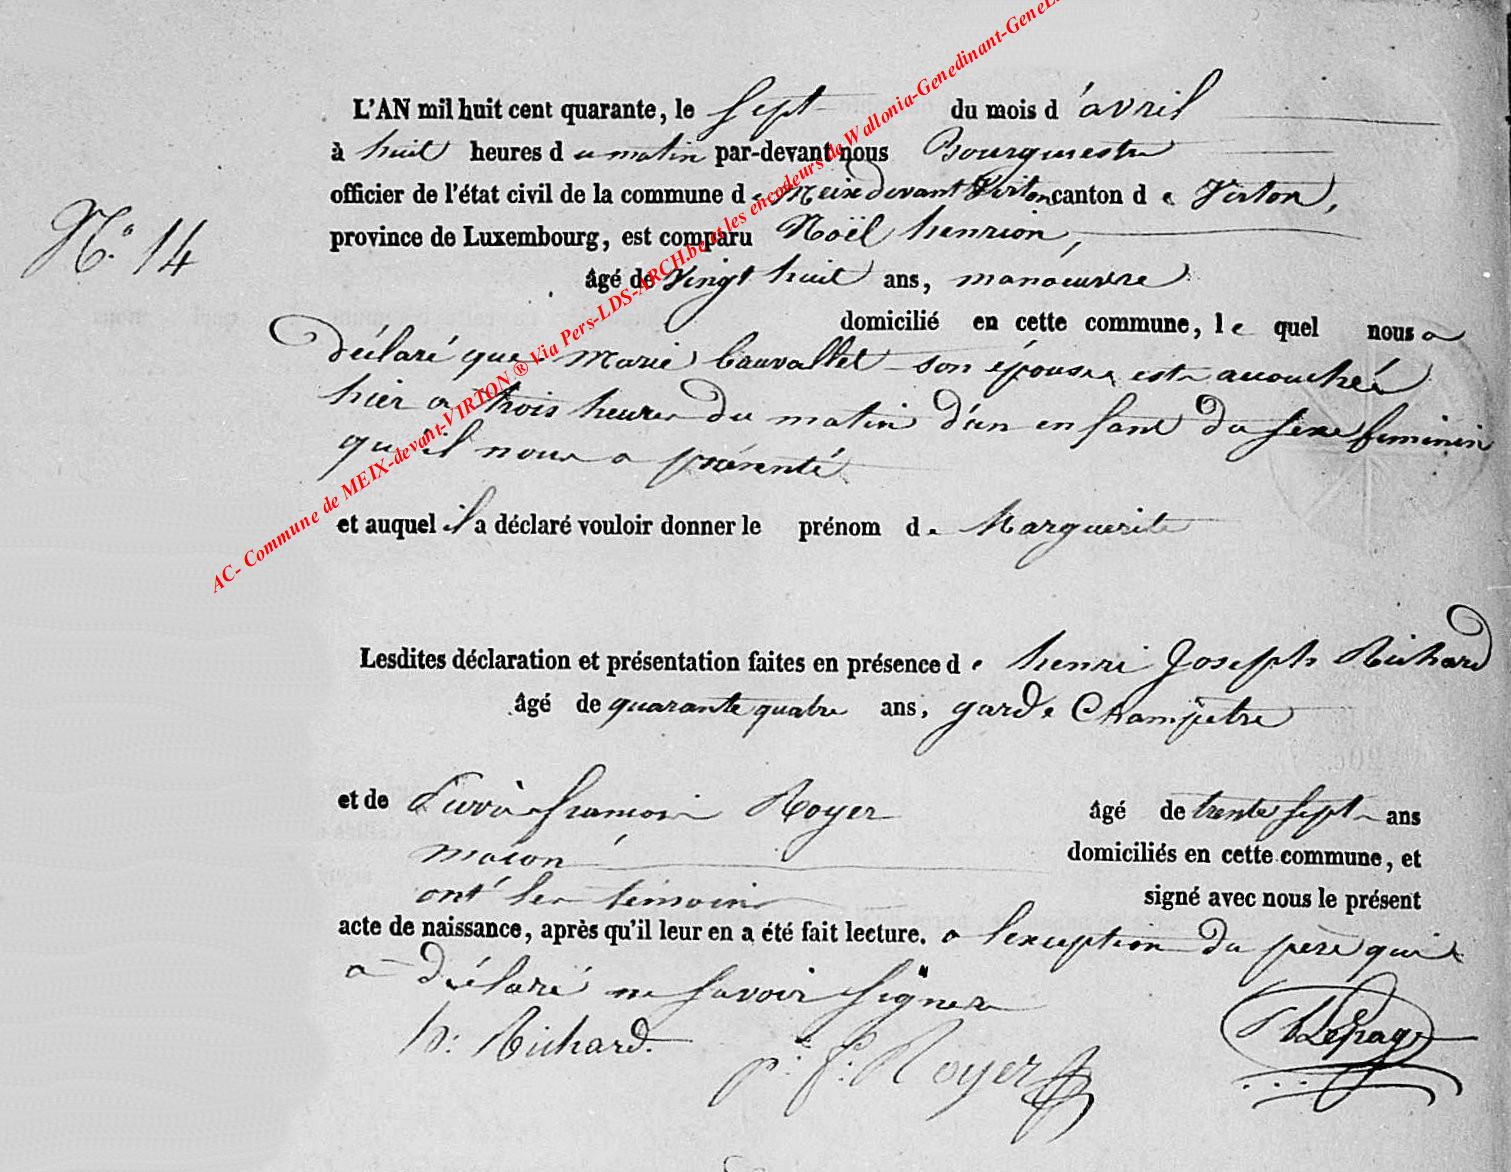 L'AN mil huit cent quarante, le sept du mois d'avril
à huit heures du matin par-devant nous Bourgmestre
officier de l'état civil de la commune de Meix devant Virton canton de Virton,
N.° 14
province de Luxembourg, est comparu Noël henrion,
âgé de Vingt huit ans, manoeuvre
domicilié en cette commune, le quel nous a
déclaré que Marie son épouse est accouchée
hier a trois heures du matin d'un enfant du sexe feminin
qu'il nous a présenté
et auquel il a déclaré vouloir donner le prénom de Marguerite
Lesdites déclaration et présentation faites en présence de henri Joseph Richard
âgé de quarante quatre ans, garde Champêtre
et de françois Royer âgé de trente sept ans
maçon domiciliés en cette commune, et
ont les témoins signé avec nous le présent
acte de naissance, après qu'il leur en a été fait lecture. a l'exception du père qui
a déclaré ne savoir signer
h: Richard.
p: f: Royer
Lepage
AC- Commune de MEIX-devant-VIRTON ® Via Pers-LDS-ARCH.be et les encodeurs de Wallonia-Genedinant-GeneL